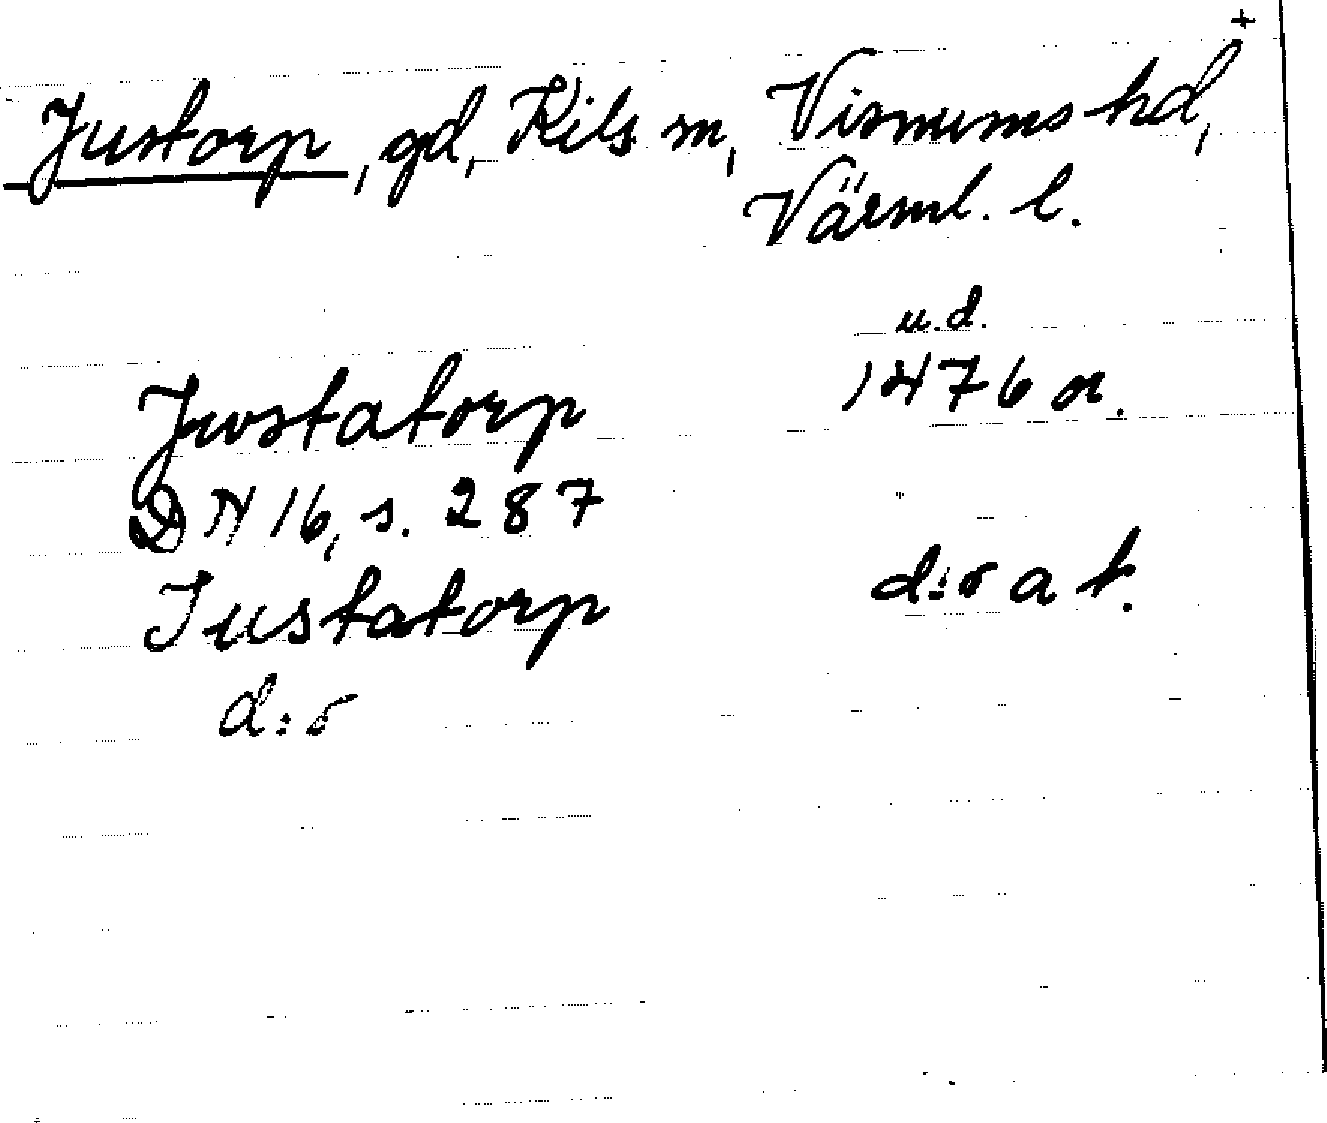 +
Justorp, gd, Kils sn, Visnums hd,
Värml. l.
u.d.
Jwstatorp 1476 or.
DN 16, s. 287
Justatorp d:o at.
d:o